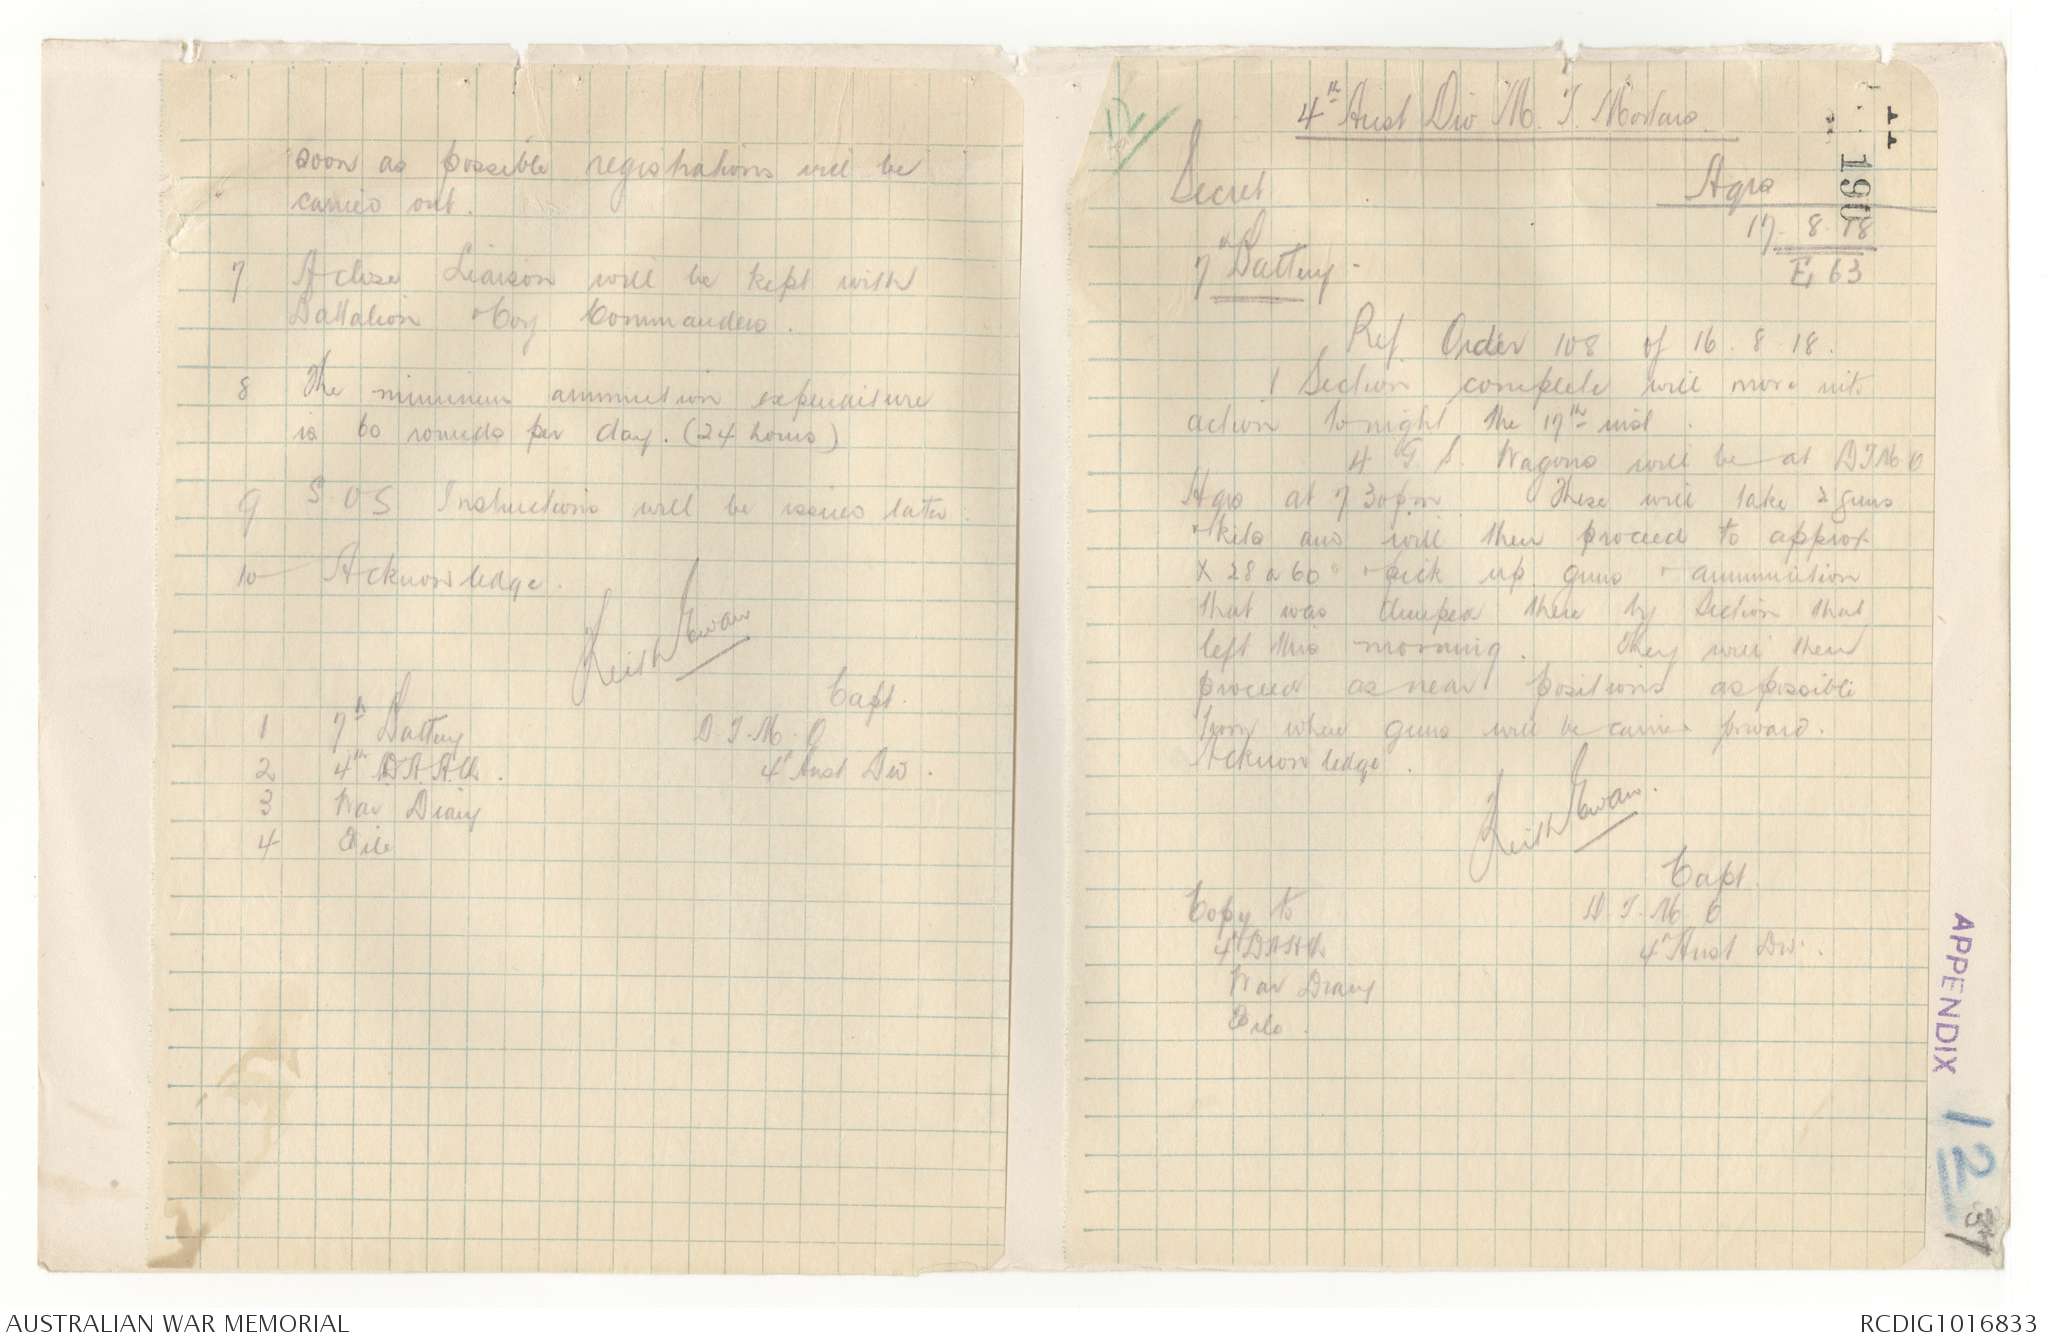 soon as possible registrations will be
carried out.
7 A close Liaison will be kept with
Battalion & Coy Commanders.
8 The minimum ammunition expenditure
is 60 rounds per day. (24 hours)
9 S.O.S Instructions will be issued later.
10 Acknowledge.
Keith Ewan
Capt.
1 7th Battery D.T.M.O
2 4th D.A.A.Ch. 4th Aust Div.
3 War Diary
4 File
12
4th Aust Div M.T. Mortars.
Secret
Hqrs
17.8.18
E 63
7th Battery -
Ref. Order 108 of 16.8.18.
1 Section complete will move into
action tonight the 17th inst.
4 G.S. Wagons will be at DTMO
Hqrs at 7 30pm These will take 2 guns
& kits and will then proceed to approx
X 28 a 60 & pick up guns & ammunition
that was dumped there by Section that
left this morning. They will then
proceed as near positions as possible
from where guns will be carried forward.
Acknowledge.
Keith Ewan.
Capt.
D.T.M.O
4th Aust Div.
Copy to
War Diary
File.
190
APPENDIX
12
37
AUSTRALIAN WAR MEMORIAL
RCDIG1016833